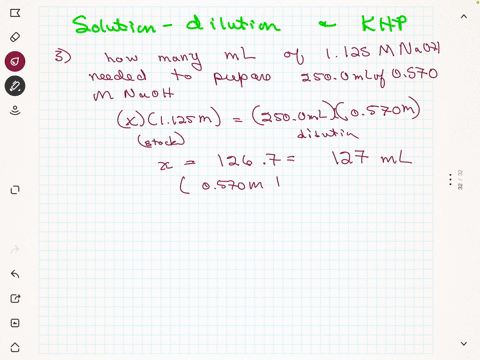 Solution - dilution & KHP
3) how many mL of 1.125 M NaOH
needed to prepare 250.0 mL of 0.570
M NaOH
(x)(1.125m) = (250.0mL)(0.570m)
(stock) dilution
x = 126.7 = 127 mL
( 0.570m 1
32 / 32